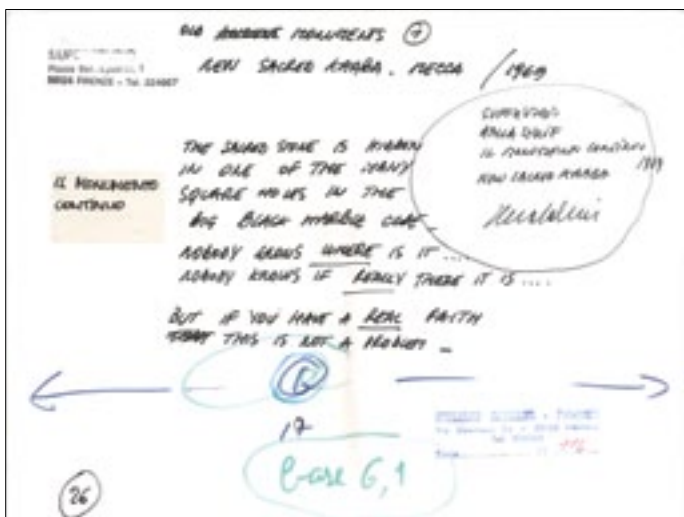 OLD MONUMENTS 7
NEW SACRED KAABA. MECCA / 1969
50122 FIRENZE - Tel.
IL MONUMENTO
CONTINUO
THE SACRED STONE IS HIDDEN
IN ONE OF THE MANY
SQUARE HOLES IN THE
BIG BLACK MARBLE CUBE _
NOBODY KNOWS WHERE IS IT ....
NOBODY KNOWS IF REALLY THERE IT IS ....
BUT IF YOU HAVE A REAL FAITH
THIS IS NOT A PROBLEM _
IL MONUMENTO CONTINUO
NEW SACRED KAABA 1969
17
6,1
26